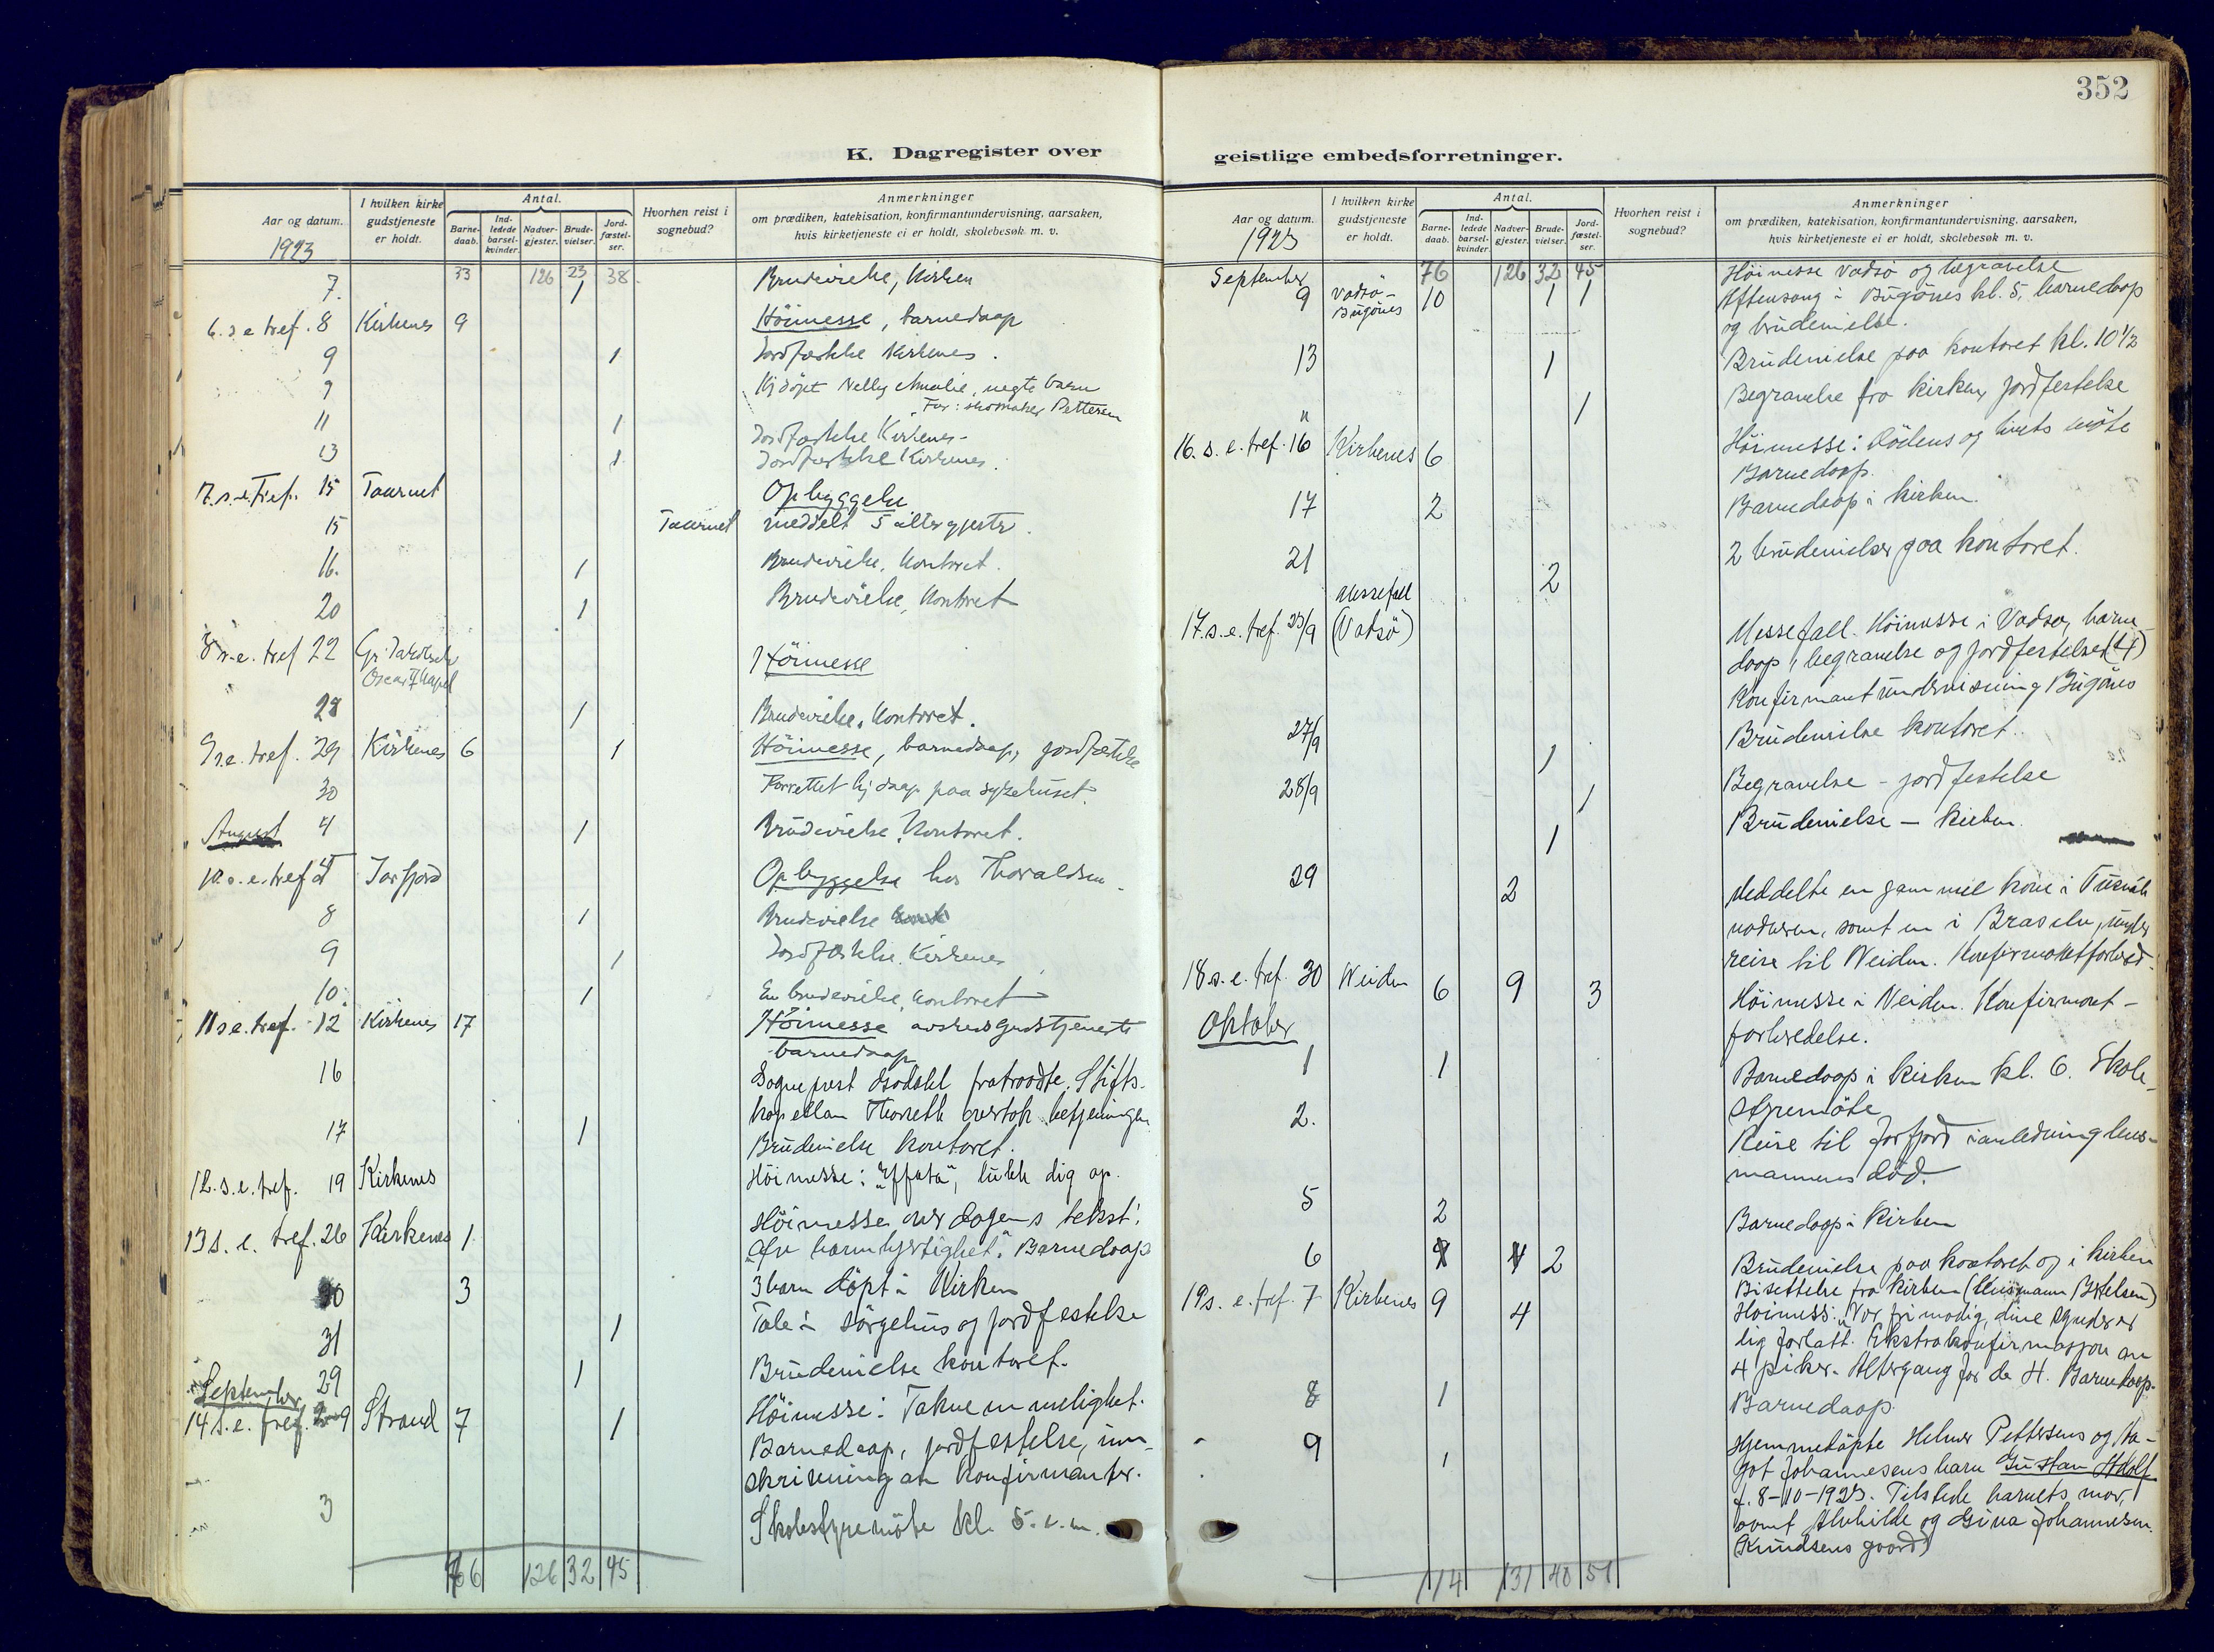 352
K. Dagregister over
geistlige embedsforretninger.
Aar og datum.
1923
I hvilken kirke gudstjeneste er holdt.
Antal.
Barne-daab.
Ind-ledede barsel-kvinder.
Nadver-gjester.
Brude-vielser.
Jord-fæstel-ser.
Hvorhen reist i sognebud?
Anmerkninger
om prædiken, katekisation, konfirmantundervisning, aarsaken,
hvis kirketjeneste ei er holdt, skolebesøk m. v.
33 126 23 38
7. 1 Brudevielse, Kirken
6. s. e. tref. 8 Kirkenes 9 Höimesse, barnedaap
9 1 Jordfæstelse Kirkenes.
9 Hj döpt Nelly Amalie, uegte barn
Far: skomaker Pettersen
11 1 Jordfæstelse Kirkenes-
13 1 Jordfæstelse Kirkenes.
7. s. e. tref. 15 Taarnet Opbyggelse
15 Taarnet meddelt 5 altergjester.
16. 1 Brudevielse, Kontoret.
20 1 Brudevielse, Kontoret
8 s. e. tref 22 Gr. Jakobselv Oscar II Kapel Höimesse
28 1 Brudevielse, Kontoret.
9 s. e. tref. 29 Kirkenes 6 1 Höimesse, barnedaap, jordfæstelse
30 Forrettet hj daap paa sykehuset.
August 4 1 Brudevielse, Kontoret.
10. s. e. tref 5 Jarfjord Opbyggelse hos Thoraldsen.
8 1 Brudevielse
9 1 Jordfæstelse, Kirkenes
10. 1 En brudevielse, Kontoret
11 s. e. tref. 12 Kirkenes 17 Höimesse avskedsgudstjeneste
barnedaap
16 Sogneprest fratraadte. Stifts-
kapellan overtok betjeningen
17 1 Brudevielse kontoret.
12. s. e. tref. 19 Kirkenes Höimesse: "Effata", lukk dig op.
13 s. e. tref. 26 Kirkenes 1 Höimesse over dagens tekst:
barmhjertighet." Barnedaap
30 3 3 barn döpt i Kirken
31 1 Tale i sörgehus og jordfestelse
29 1 Brudevielse kontoret.
September
14 s. e. tref. 2 Strand 7 1 Höimesse: Taknemmelighet.
Barnedaap, jordfestelse, inn-
skrivning av konfirmanter.
3 Skolestyremöte kl. 5. e. m.
76 126 32 45
Aar og datum.
1923
I hvilken kirke gudstjeneste er holdt.
Antal.
Barne-daab.
Ind-ledede barsel-kvinder.
Nadver-gjester.
Brude-vielser.
Jord-fæstel-ser.
Hvorhen reist i sognebud?
Anmerkninger
om prædiken, katekisation, konfirmantundervisning, aarsaken,
hvis kirketjeneste ei er holdt, skolebesøk m. v.
76 126 32 45
September Höimesse Vadsö og begravelse
9 Vadsö- Bugönes 10 1 1 Aftensang i Bugönes kl. 5, barnedaap
og brudevielse.
13 1 Brudevielse paa kontoret kl. 10 1/2
" 1 Begravelse fra kirken, jordfestelse
16. s. e. tref. 16 Kirkenes 6 Höimesse: Dödens og livets möte
Barnedaap.
17 2 Barnedaap i kirken.
21 2 2 brudevielser paa kontoret.
Messefall
17. s. e. tref. 23/9 (Vadsö) Messefall. Höimesse i Vadsö, barne
daap, begravelse og jordfestelser (4)
Konfirmantundervisning Bugönes
27/9 1 Brudevielse kontoret.
28/9 1 Begravelse - jordfestelse
1 Brudevielse - kirken.
29 2 Meddelte en gammel kone i
samt en i Braselv, under
reise til Neiden. Konfirmantforbered-
18. s. e. tref. 30 Neiden 6 9 3 Höimesse i Neiden. Konfirmant-
forberedelse.
Oktober
1 1 Barnedaap i kirken kl. 6. Skole-
styremöte
2. Reise til Jarfjord i anledning lens-
mannens död.
5 2 Barnedaap i Kirken
6 2 Brudevielse paa kontoret og i kirken
Bisettelse fra kirken
19 s. e. tref. 7 Kirkenes 9 4 Höimesse: "Vær frimodig, dine synder er
dig forlatt. Ekstrakonfirmasjon av
4 piker. Altergang for de 4. Barnedaap.
8 1 Barnedaap.
9 1 Hjemmedöpte Helmer Pettersens og
Johannesens barn Gustav Adolf
f. 8-10-1923. Tilstede barnets mor,
samt Alvhilde og Gina Johannesen.
(Knudsens gaard)
114 131 40 51